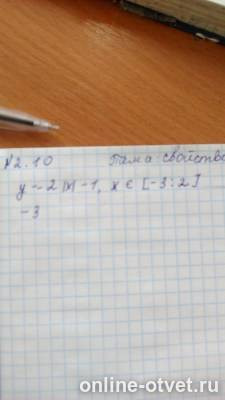 №2.10 Тема свойства
y - 2|x| -1, x ∈ [-3:2]
-3
online-otvet.ru